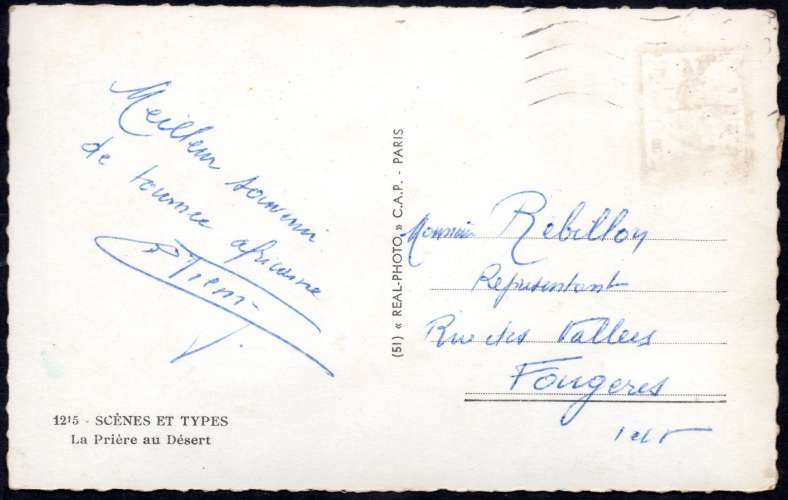 Meilleur souvenir
de tournee africaine
1215 - SCÈNES ET TYPES
La Prière au Désert
(51) « REAL-PHOTO » C.A.P. - PARIS
Monsieur Rebillon
Representant
Rue des Vallees
Fougeres
I et V